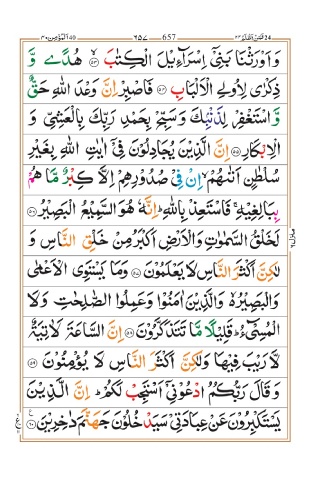 المؤمن ٤٠ ٦٥٧ 657 فمن اظلم ٢٤
وَ اَوْرَثْنَا بَنِیْۤ اِسْرَآءِیْلَ الْكِتٰبَ ۙ﴿۵۳﴾ هُدًی وَّ
ذِكْرٰی لِاُولِی الْاَلْبَابِ ﴿۵۴﴾ فَاصْبِرْ اِنَّ وَعْدَ اللّٰهِ حَقٌّ
وَّ اسْتَغْفِرْ لِذَنْۢبِكَ وَ سَبِّحْ بِحَمْدِ رَبِّكَ بِالْعَشِیِّ وَ
الْاِبْكَارِ ﴿۵۵﴾ اِنَّ الَّذِیْنَ یُجَادِلُوْنَ فِیْۤ اٰیٰتِ اللّٰهِ بِغَیْرِ
سُلْطٰنٍ اَتٰىهُمْ ۙ اِنْ فِیْ صُدُوْرِهِمْ اِلَّا كِبْرٌ مَّا هُمْ
بِبَالِغِیْهِ ۚ فَاسْتَعِذْ بِاللّٰهِ ؕ اِنَّهٗ هُوَ السَّمِیْعُ الْبَصِیْرُ ﴿۵۶﴾
لَخَلْقُ السَّمٰوٰتِ وَ الْاَرْضِ اَكْبَرُ مِنْ خَلْقِ النَّاسِ وَ
لٰكِنَّ اَكْثَرَ النَّاسِ لَا یَعْلَمُوْنَ ﴿۵۷﴾ وَ مَا یَسْتَوِی الْاَعْمٰی
وَ الْبَصِیْرُ ۙ۬ وَ الَّذِیْنَ اٰمَنُوْا وَ عَمِلُوا الصّٰلِحٰتِ وَ لَا
الْمُسِیْٓءُ ؕ قَلِیْلًا مَّا تَتَذَكَّرُوْنَ ﴿۵۸﴾ اِنَّ السَّاعَةَ لَاٰتِیَةٌ
لَّا رَیْبَ فِیْهَا وَ لٰكِنَّ اَكْثَرَ النَّاسِ لَا یُؤْمِنُوْنَ ﴿۵۹﴾
وَ قَالَ رَبُّكُمُ ادْعُوْنِیْۤ اَسْتَجِبْ لَكُمْ ؕ اِنَّ الَّذِیْنَ
یَسْتَكْبِرُوْنَ عَنْ عِبَادَتِیْ سَیَدْخُلُوْنَ جَهَنَّمَ دٰخِرِیْنَ ﴿۶۰﴾